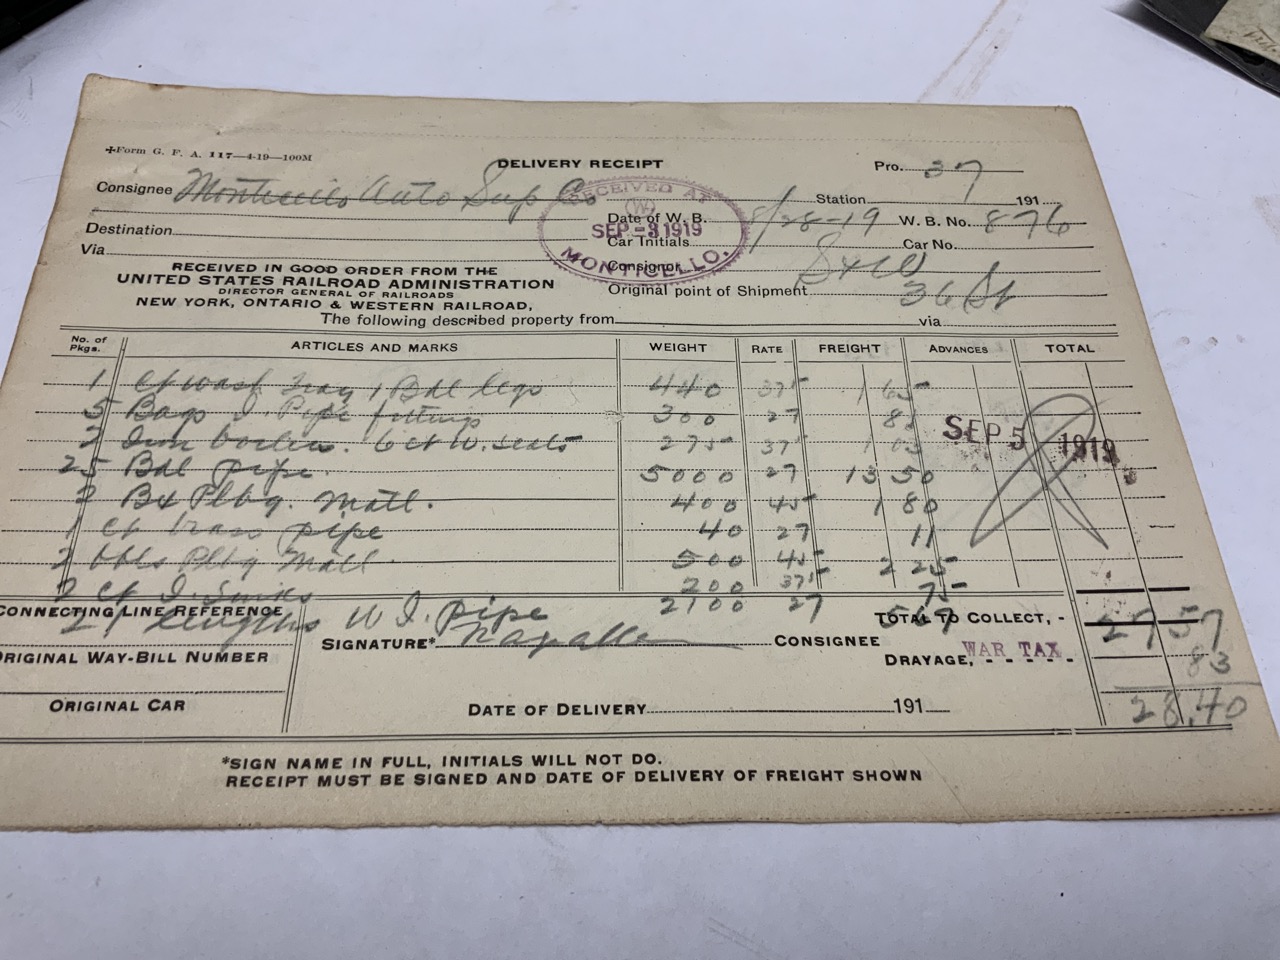 Form G. F. A. 117—4-19—100M
DELIVERY RECEIPT
Pro. 37
Consignee Monticello Auto Sup Co
Station 191
RECEIVED AT
SEP -3 1919
MONTICELLO.
Date of W. B. 8/28-19 W. B. No. 876
Destination
Car Initials Car No.
Via
Consignor
RECEIVED IN GOOD ORDER FROM THE
UNITED STATES RAILROAD ADMINISTRATION
DIRECTOR GENERAL OF RAILROADS
NEW YORK, ONTARIO & WESTERN RAILROAD,
Original point of Shipment 36 St
The following described property from via
No. of Pkgs. ARTICLES AND MARKS WEIGHT RATE FREIGHT ADVANCES TOTAL
1 Ct Wash Tray 1 Bdl legs 440 37⁵ 1 65
5 Bags I. Pipe fittings 300 27 81
2 Iron boilers. 6 ct W. seats 275 37⁵ 1 03
SEP 5 1919
25 Bdl pipe. 5000 27 13 50
2 Bx Plbg. Matl. 400 45 1 80
1 Ct brass pipe 40 27 11
2 bbls Plbg Matl 500 45 2 25
2 Ct I. Sinks 200 37⁵ 75
21 lengths W I. pipe 2100 27 5 67
CONNECTING LINE REFERENCE
TOTAL TO COLLECT, - 27 57
SIGNATURE* CONSIGNEE
ORIGINAL WAY-BILL NUMBER
DRAYAGE, WAR TAX 83
28.40
ORIGINAL CAR
DATE OF DELIVERY 191
*SIGN NAME IN FULL, INITIALS WILL NOT DO.
RECEIPT MUST BE SIGNED AND DATE OF DELIVERY OF FREIGHT SHOWN